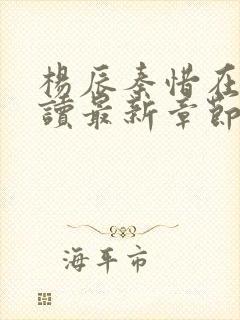 楊辰秦惜在
讀最新章節
海平市